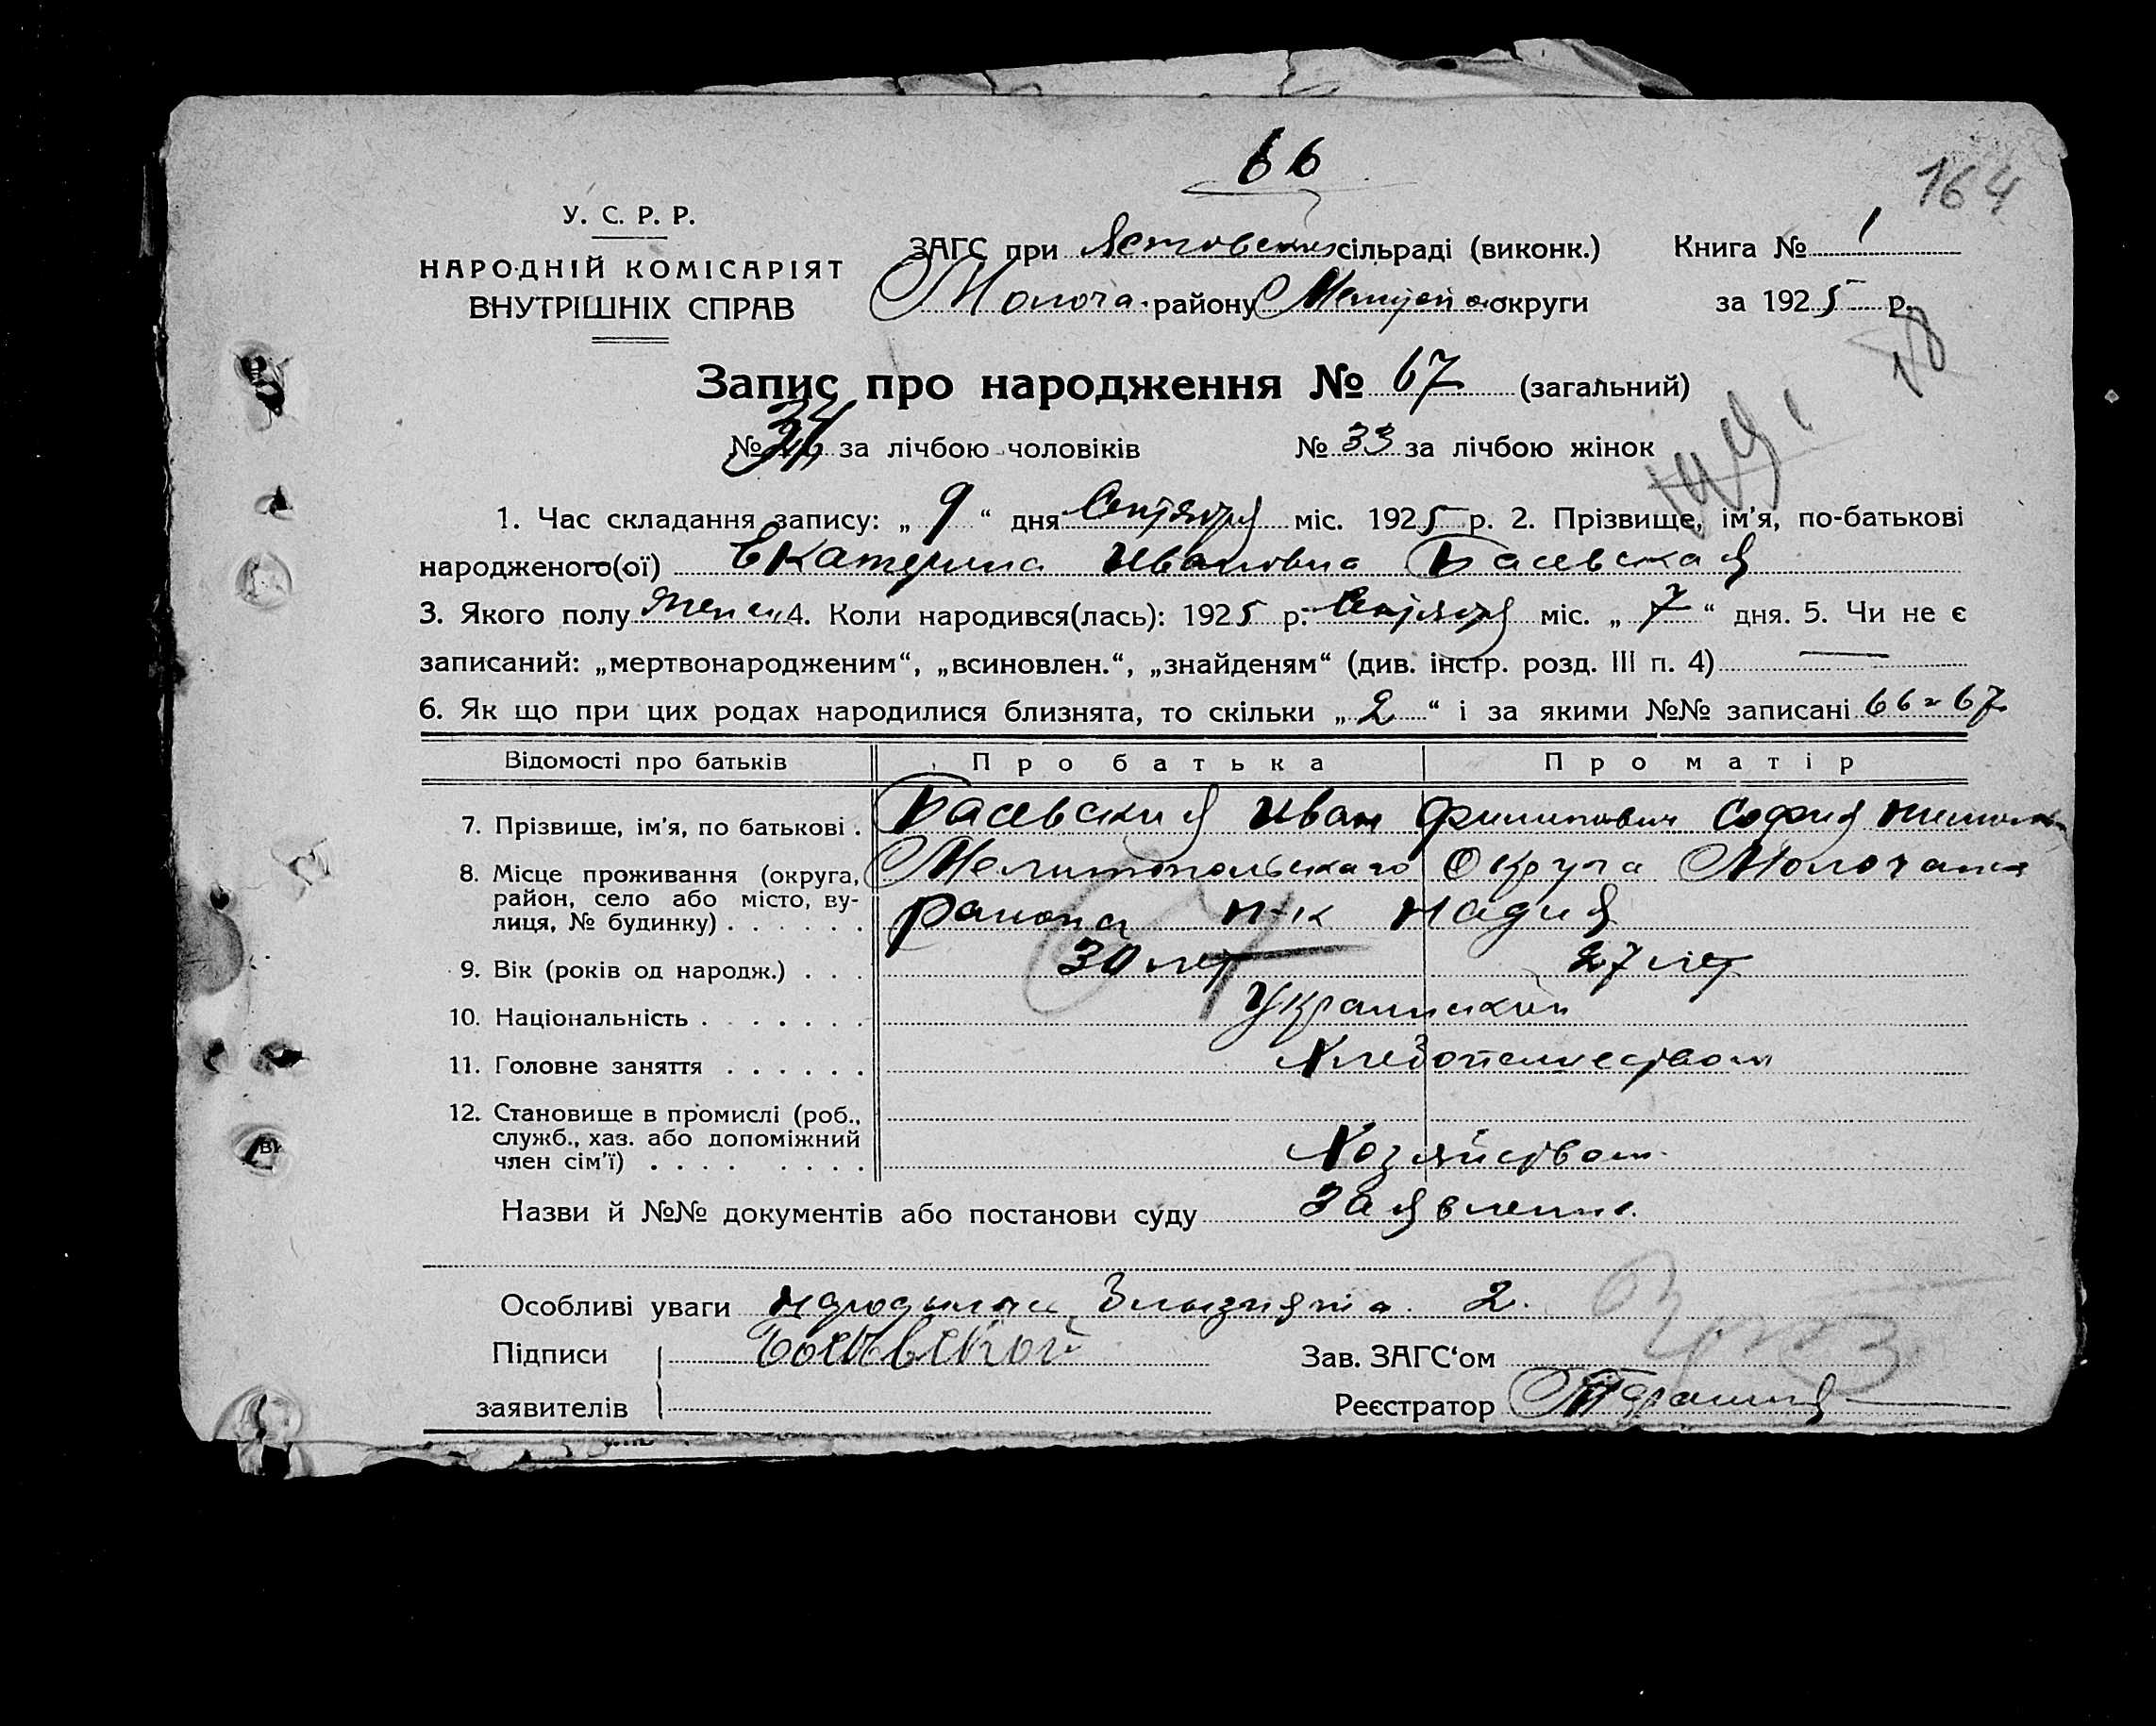 66
164
У. С. Р. Р.
НАРОДНІЙ КОМІСАРІЯТ
ВНУТРІШНІХ СПРАВ
ЗАГС при сільраді (виконк.) Книга № 1
Молоча. району округи за 1925 р.
Запис про народження № 67 (загальний)
№ за лічбою чоловіків № 33 за лічбою жінок
1. Час складання запису: „ 9 “ дня Сентября міс. 1925 р. 2. Прізвище, ім'я, по-батькові
народженого(ої) Екатерина Ивановна Басевская
3. Якого полу женск 4. Коли народився(лась): 1925 р. Сентября міс. „ 7 “ дня. 5. Чи не є
записаний: „мертвонародженим“, „всиновлен.“, „знайденям“ (див. інстр. розд. III п. 4) —
6. Як що при цих родах народилися близнята, то скільки „ 2 “ і за якими №№ записані 66 - 67
Відомості про батьків Про батька Про матір
7. Прізвище, ім'я, по батькові . Басевский Иван Филипович София
8. Місце проживання (округа, Мелитопольскаго Округа
район, село або місто, ву-
лиця, № будинку) . . . . . . района п-к Надия
9. Вік (років од народж.) . . . 30 лет 27 лет
10. Національність . . . . . . . Украински
11. Головне заняття . . . . . . Хлебопашеством
12. Становище в промислі (роб.,
служб., хаз. або допоміжний
член сім'ї) . . . . . . . . Хозяйством
Назви й №№ документів або постанови суду Заявление
Особливі уваги близнята 2.
Підписи Зав. ЗАГС‘ом
заявителів Реєстратор